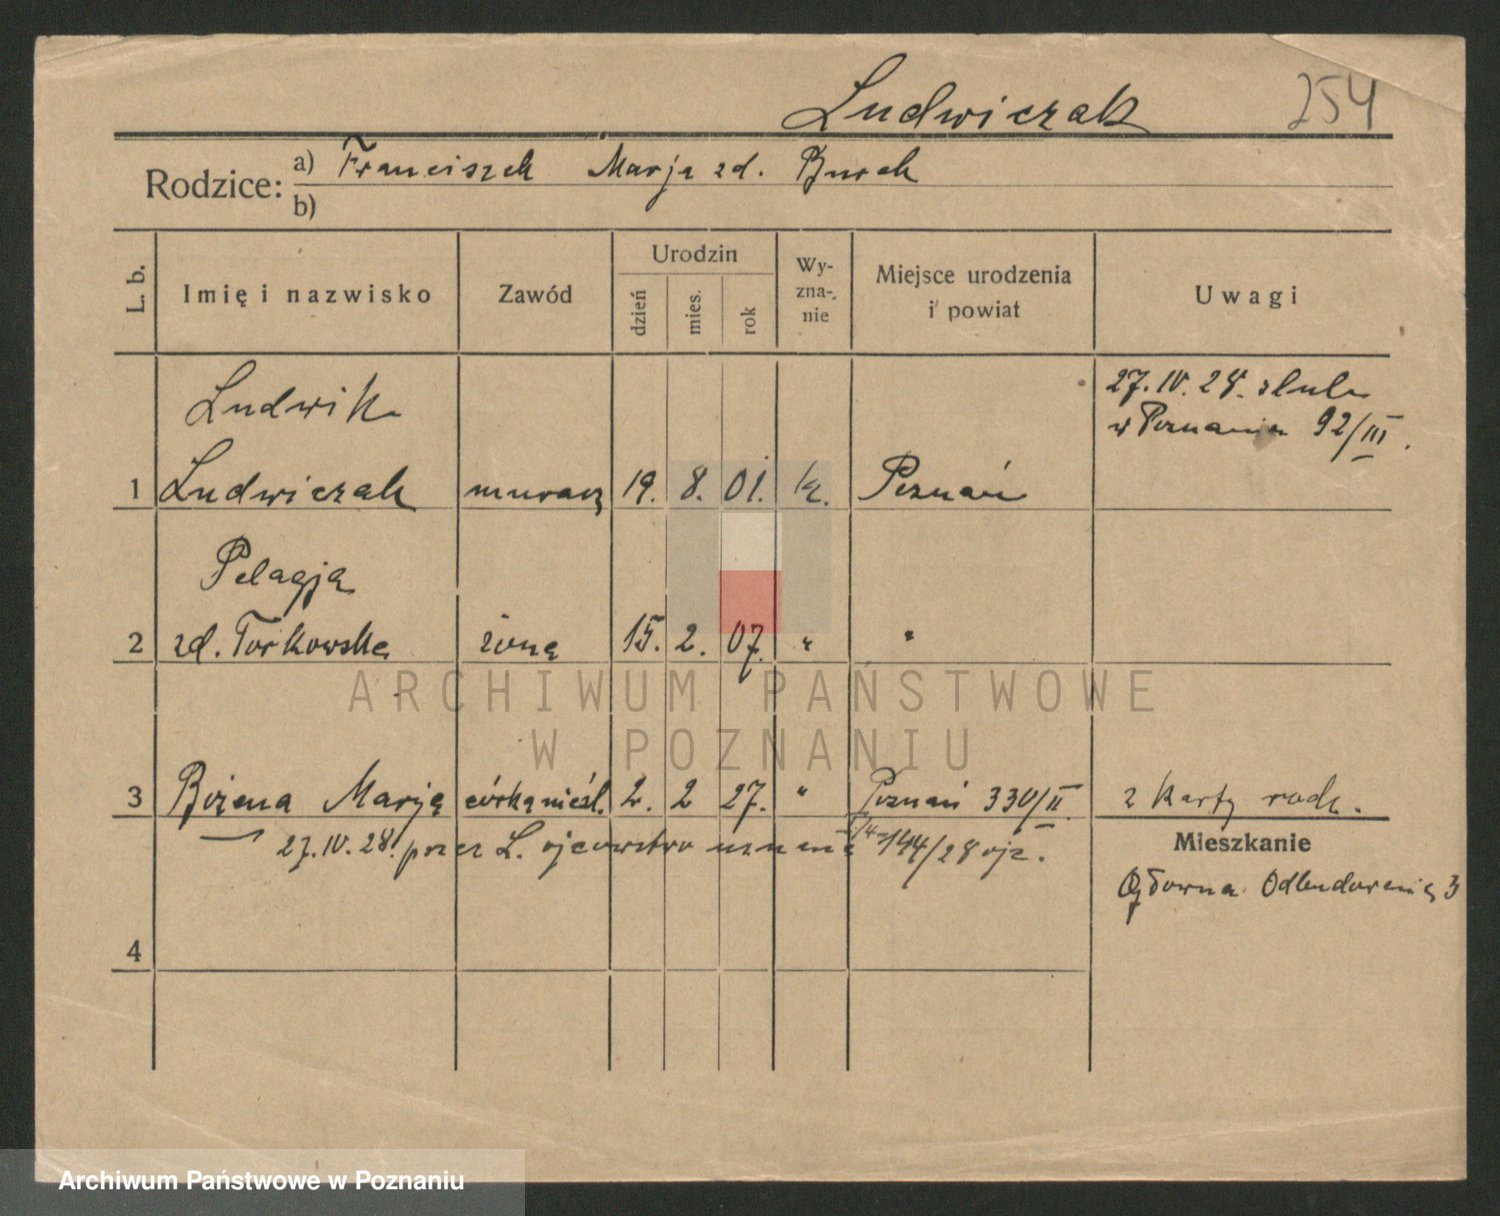 Ludwiczak 254
Rodzice: a) Franciszek Marja zd. Burek
b)
L. b. Imię i nazwisko Zawód Urodzin dzień mies. rok Wy-zna-nie Miejsce urodzenia i powiat Uwagi
Ludwik 27.IV.28. ślub
w Poznaniu 92/III.
1 Ludwiczak murarz 19. 8. 01. kt. Poznań
Pelagja
2 zd. Torkowska żona 15. 2. 07. " "
ARCHIWUM PAŃSTWOWE
W POZNANIU
3 Bożena Marja córka nieśl. 2. 2 27. " Poznań 330/II z karty rodz.
27.IV.28. przez L. ojcowstwo uznane 144/28 ojc.
Mieszkanie
Główna Odbudowania 3
4
Archiwum Państwowe w Poznaniu